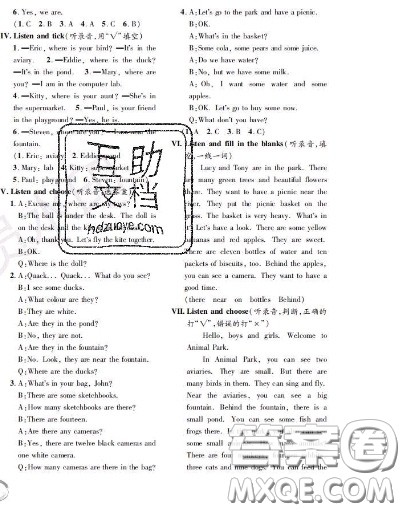 6. Yes, we are.
(1. C 2. B 3. A 4. A 5. C 6. B)
IV. Listen and tick(听录音,用“√”填空)
1. —Eric, where is your bird? —It's in the
aviary. 2. —Eddie, where is the duck?
—It's in the pond. 3. —Mary, where are
you? —I am in the computer lab.
4. —Kitty, where is your aunt? —She's in
the supermarket. 5. —Paul, is your friend
in the playground? —Yes, he is.
6. —Steven,
fountain.
(1. Eric; aviary 2. Eddie;
3. Mary; lab 4. Kitty; supermarket
5. Paul; playground
V. Listen and choose(听录音,
1. A: Excuse me, where
B: The ball is under the desk. The doll is
on the desk and the kite
A: Oh, thank you. Let's fly the kite together.
B: OK.
Q: Where is the doll?
2. A: Quack... Quack... What do you see?
B: I see some ducks.
A: What colour are they?
B: They are white.
A: Are they in the pond?
B: No, they are not.
A: Are they in the fountain?
B: No. Look, they are near the fountain.
Q: Where are the ducks?
3. A: What's in your bag, John?
B: There are some sketchbooks.
A: How many sketchbooks are there?
B: There are fourteen.
A: Are there any cameras?
B: Yes, there are twelve black cameras and
one white camera.
Q: How many cameras are there in the bag?
4. A: Let's go to the park and have a picnic.
B: OK.
A: What's in the basket?
B: Some cola, some pears and some juice.
A: Do we have water?
B: No, but we have some milk.
A: Oh, I want some water and some
apples.
B: OK. Let's go to buy some now.
Q: What don't you have?
(1. A 2. C 3. B 4. C)
VI. Listen and fill in the blanks(听录音,填
空,一线一词)
Lucy and Tony are in the park. There
are many green trees and beautiful flowers
there. They want to have a picnic near the
river. They put the picnic basket on the
grass. The basket is very heavy. What's in
it? Let's have a look. There are some yellow
bananas and red apples. They are sweet.
There are eleven bottles of water and ten
packets of biscuits, too. Behind the apples,
you can see a camera. They want to have a
good time.
(there near on bottles Behind)
VII. Listen and choose(听录音,判断,正确的
打“√”,错误的打“×”)
Hello, boys and girls. Welcome to
Animal Park.
In Animal Park, you can see two
aviaries. They are small. But there are
many birds in them. They can sing and fly.
Near the aviaries, you can see a big
fountain. Behind the fountain, there is a
small pond. You can see some fish and
frogs there.
some small
around
three cats and nine dogs. You can feed the
互助文档
hdzuoye.com
答案卷
MXQE.COM